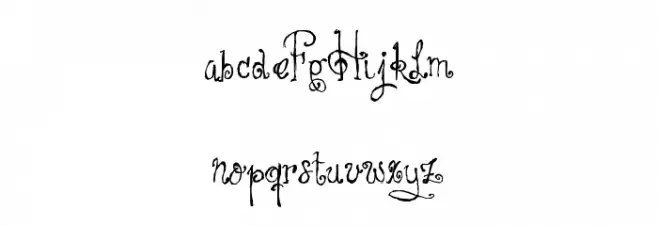 abcdeFgHijklm
nopqrstuvwxyz